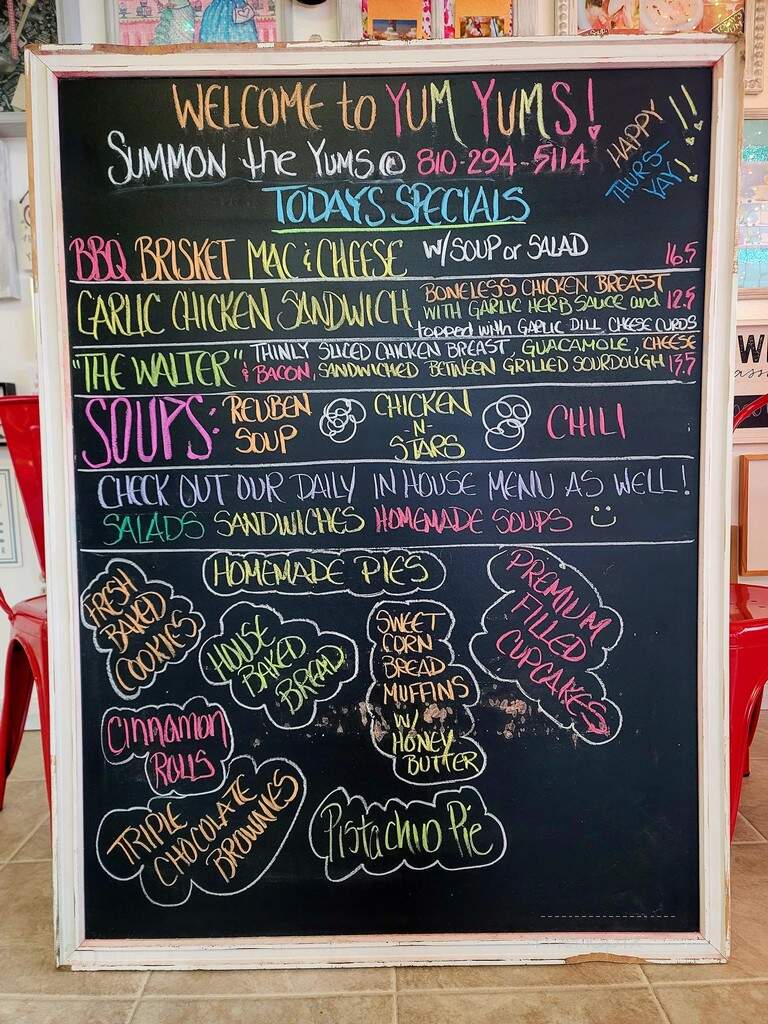 WELCOME to YUM YUMS!
SUMMON the YUMS @ 810-294-5114
HAPPY
THURS-
YAY!
TODAYS SPECIALS
BBQ BRISKET MAC & CHEESE W/ SOUP or SALAD 16.5
GARLIC CHICKEN SANDWICH BONELESS CHICKEN BREAST
WITH GARLIC HERB SAUCE and 12.5
topped with GARLIC DILL CHEESE CURDS
"THE WALTER" THINLY SLICED CHICKEN BREAST, GUACAMOLE, CHEESE
& BACON, SANDWICHED BETWEEN GRILLED SOURDOUGH 13.5
SOUPS: REUBEN SOUP CHICKEN -N- STARS CHILI
CHECK OUT OUR DAILY IN HOUSE MENU AS WELL!
SALADS SANDWICHES HOMEMADE SOUPS
HOMEMADE PIES
FRESH
BAKED
COOKIES
HOUSE
BAKED
BREAD
SWEET
CORN
BREAD
MUFFINS
W/
HONEY
BUTTER
PREMIUM
FILLED
CUPCAKES
CINNAMON
ROLLS
TRIPLE
CHOCOLATE
BROWNIES
Pistachio Pie